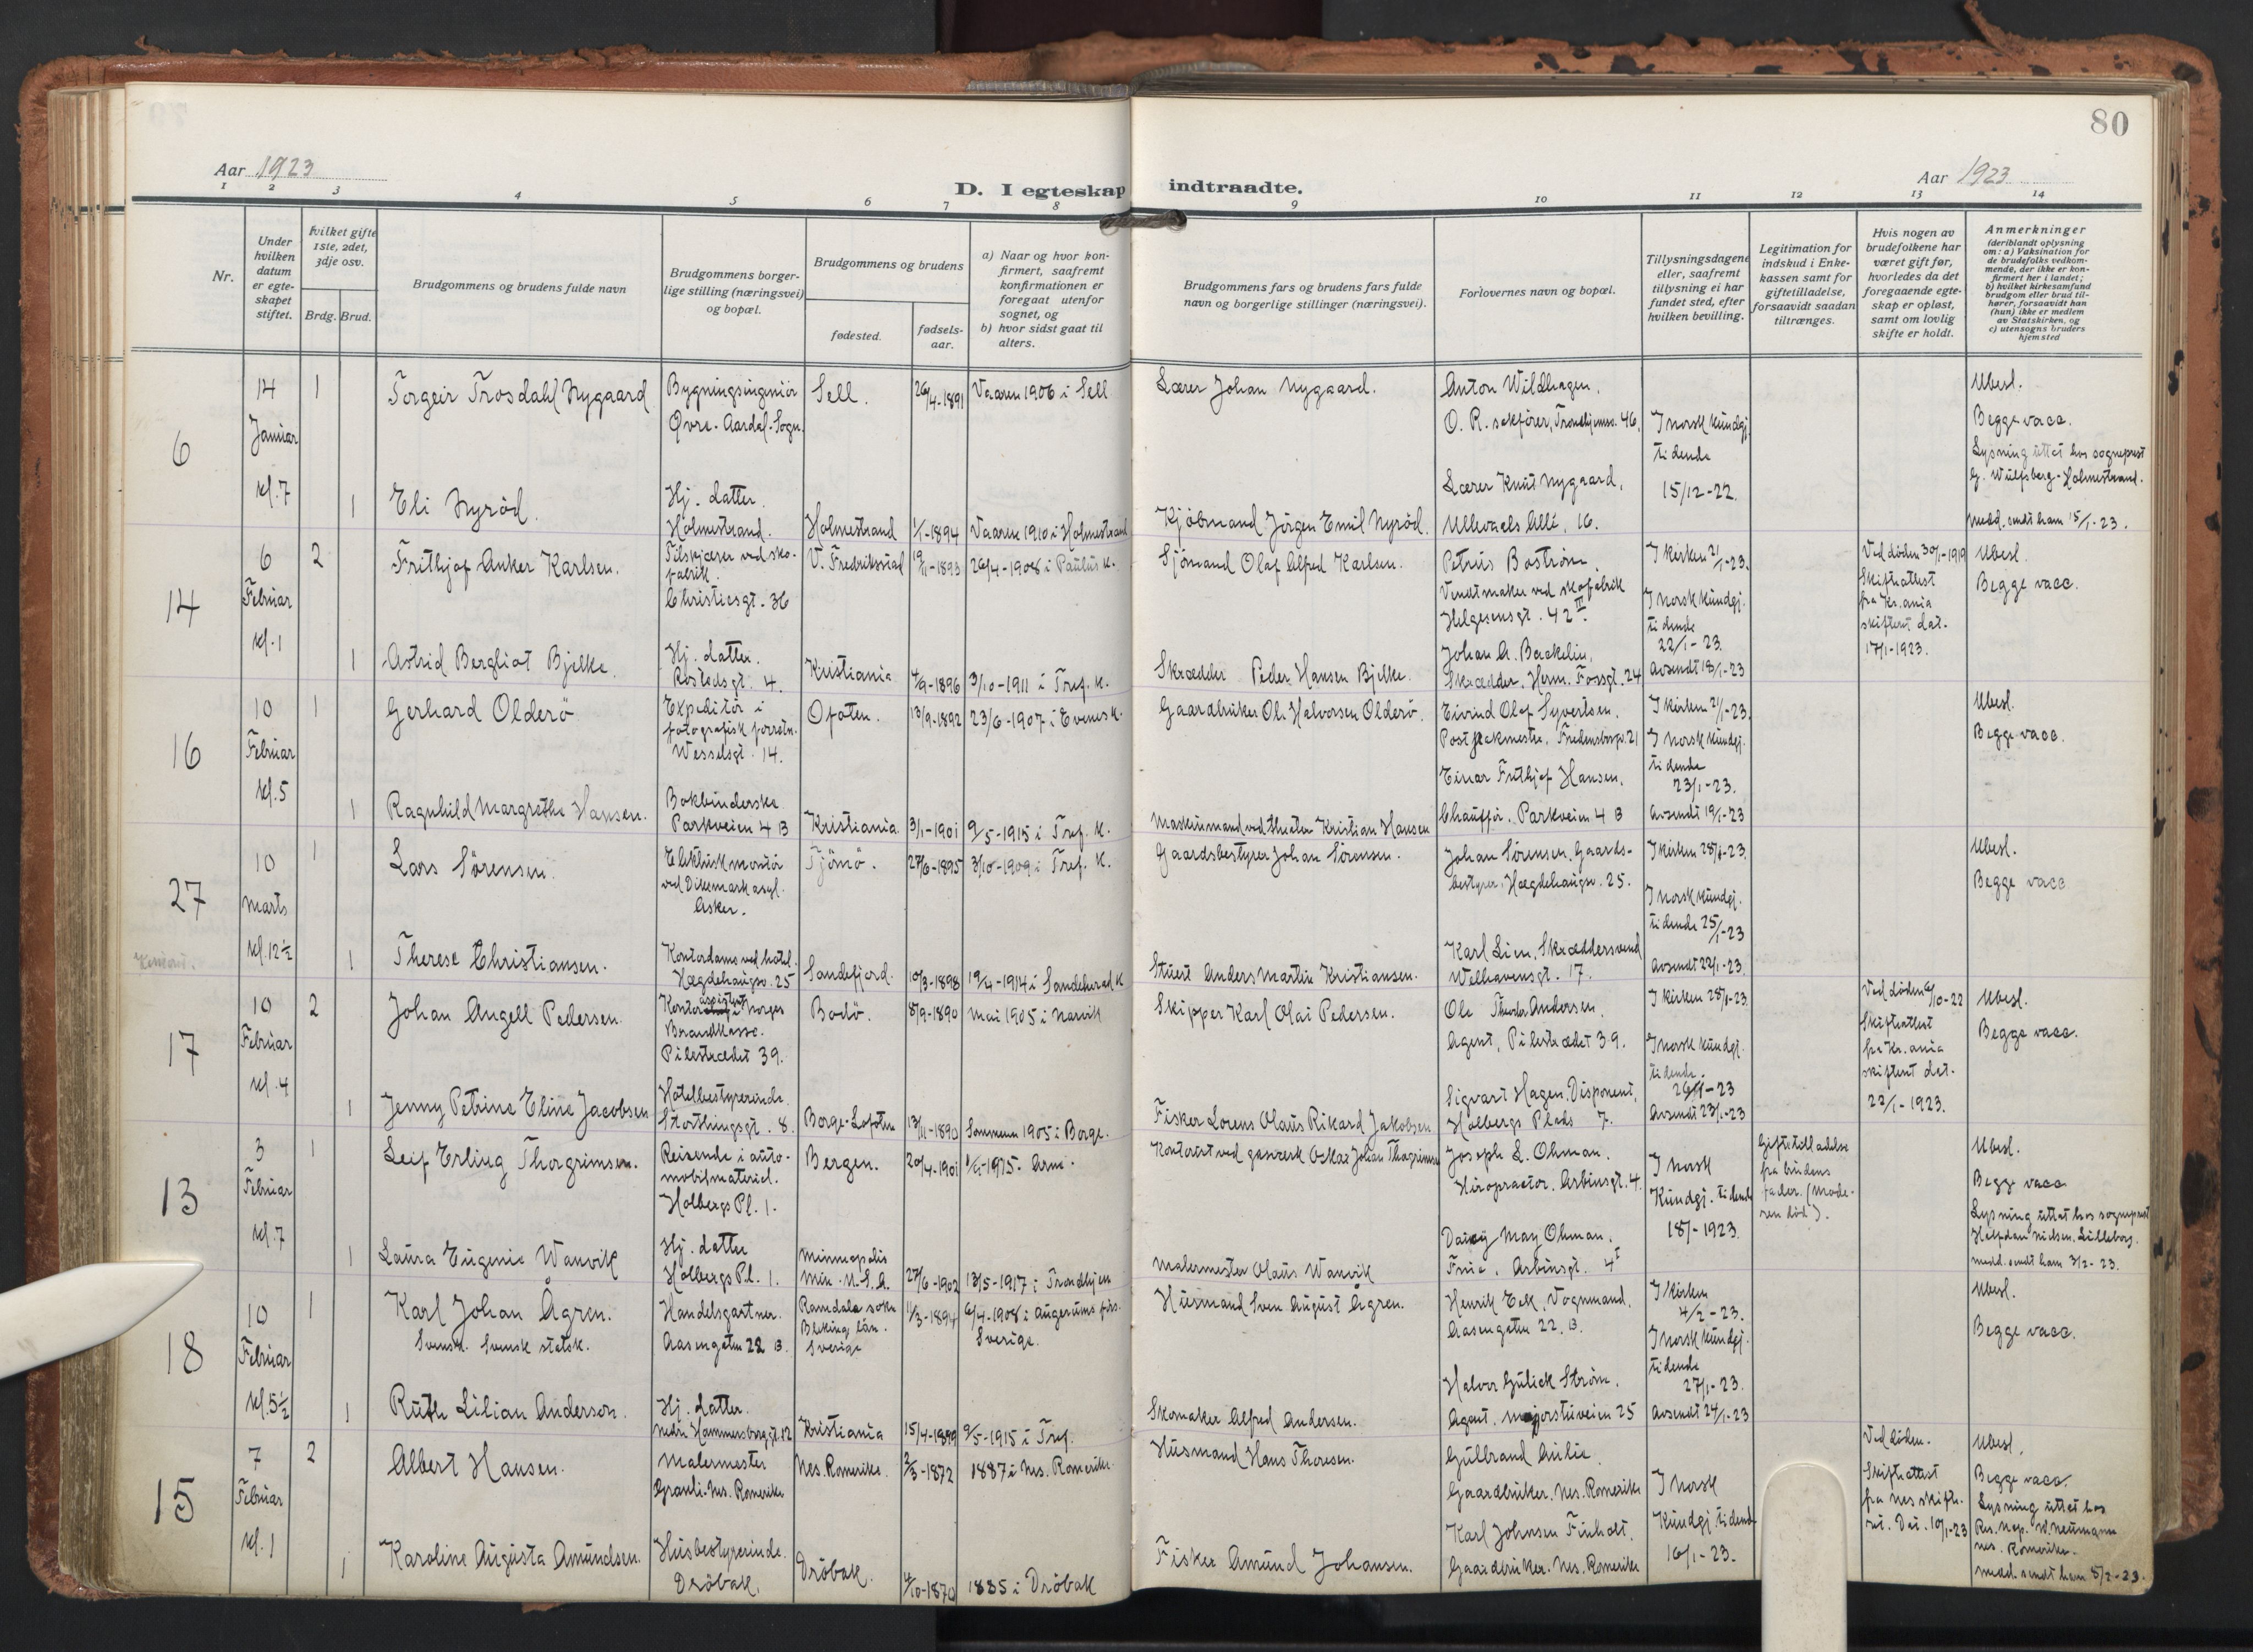 80
Aar 1923
D. I egteskap indtraadte.
Aar 1923
1 2 3 4 5 6 7 8 9 10 11 12 13 14
Nr.
Under hvilken datum er egteskapet stiftet.
hvilket gifte 1ste, 2det, 3dje osv.
Brdg. Brud.
Brudgommens og brudens fulde navn
Brudgommens borgerlige stilling (næringsvei) og bopæl.
Brudgommens og brudens
fødested.
fødselsaar.
a) Naar og hvor konfirmert, saafremt konfirmationen er foregaat utenfor sognet, og
b) hvor sidst gaat til alters.
Brudgommens fars og brudens fars fulde navn og borgerlige stillinger (næringsvei).
Forlovernes navn og bopæl.
Tillysningsdagene eller, saafremt tillysning ei har fundet sted, efter hvilken bevilling.
Legitimation for indskud i Enkekassen samt for giftetilladelse, forsaavidt saadan tiltrænges.
Hvis nogen av brudefolkene har været gift før, hvorledes da det foregaaende egteskap er opløst, samt om lovlig skifte er holdt.
Anmerkninger (deriblandt oplysning om: a) Vaksination for de brudefolks vedkommende, der ikke er konfirmert her i landet; b) hvilket kirkesamfund brudgom eller brud tilhører, forsaavidt han (hun) ikke er medlem av Statskirken, og c) utensogns bruders hjemsted
6
14 Januar kl. 7
1
Torgeir Trosdahl Nygaard
Bygningsingeniör
Övre-Aardal-Sogn.
Sell.
26/4-1891
Vaaren 1906 i Sell
Lærer Johan Nygaard.
Anton Wildhagen,
O. R. sakförer, Trondhjemsv. 46,
Lærer Knut Nygaard,
Ullevaals Allé, 16.
I norsk kundgj.
tidende
15/12-22.
Ubesl.
Begge vacc.
Lysning uttat hos sogneprest
G. Wulfsberg-Holmestrand.
medd. sendt ham 15/1-23.
1
Eli Nyröd.
Hj. datter.
Holmestrand.
Holmestrand
1/1-1894
Vaaren 1910 i Holmestrand
Kjöbmand Jörgen Emil Nyröd.
14
6 Februar kl. 1
2
Frithjof Anker Karlsen.
Tilskjærer ved skofabrik.
Christiesgt. 36
V. Fredrikstad
19/11-1893
26/4-1908 i Paulus k.
Sjömand Olaf Alfred Karlsen.
Petrus Boström,
Vendtmaker ved skofabrik
Helgesensgt. 42 III
Johan A. Backelin,
Skrædder, Herm. Fossgt. 24
I kirken 21/1-23.
I norsk kundgj.
tidende
22/1-23.
Avsendt 18/1-23
Ved döden 30/1-1919
Skifteattest
fra Kr.ania
skifteret dat.
17/1-1923.
Ubesl.
Begge vacc.
1
Astrid Bergliot Bjelke.
Hj. datter.
Rostedsgt. 4.
Kristiania
4/9-1896
3/10-1911 i Tref. k.
Skrædder Peder Hansen Bjelke.
16
10 Februar kl. 5
1
Gerhard Olderö
Expeditör i
fotografisk forretn.
Wesselsgt. 14.
Ofoten.
13/9-1892
23/6-1907 i Evenes k.
Gaardbruker Ole Halvorsen Olderö.
Eivind Olaf Syvertsen,
Postpakmester, Fredensborgv. 21
Einar Frithjof Hansen,
Chauffør. Parkveien 4 B
I kirken 21/1-23.
I norsk kundgj.
tidende
23/1-23.
Avsendt 19/1-23
Ubesl.
Begge vacc.
1
Ragnhild Margrethe Hansen.
Bokbinderske
Parkveien 4 B
Kristiania.
3/1-1901
9/5-1915 i Tref. k.
Maskinmand ved theater Kristian Hansen
27
10 Marts kl. 12½
1
Lars Sörensen.
Elektrisk montör
ved Dikemark asyl.
Asker.
Tjömö.
27/6-1895
3/10-1909 i Tref. k.
Gaardsbestyrer Johan Sörensen.
Johan Sörensen, Gaardsbestyrer, Hægdehaugsv. 25.
Karl Lien, Skræddersvend
Welhavensgt. 17.
I kirken 28/1-23.
I norsk kundgj.
tidende 25/1-23
Avsendt 22/1-23.
Ubesl.
Begge vacc
1
Therese Christiansen.
Kontordame ved hotel.
Hægdehaugsv. 25
Sandefjord.
10/3-1898
19/4-1914 i Sandeherad k
Stuert Anders Martin Kristiansen.
17
10 Februar kl. 4
2
Johan Angell Pedersen
Kontorassistent i Norges
Brandkasse.
Pilestrædet 39.
Bodö.
8/9-1890
Mai 1905 i Narvik
Skipper Karl Olai Pedersen.
Ole Theodor Andersen,
Agent, Pilestrædet 39.
Sigvart Hagen, Disponent,
Holbergs Plads 7.
I kirken 28/1-23.
I norsk kundgj.
tidende.
26/1-23
Avsendt 23/1-23
Ved döden 6/10-22
Skifteattest
fra Kr.ania
skifteret dat.
22/1-1923.
Ubesl.
Begge vacc.
1
Jenny Petrine Eline Jacobsen
Hotelbestyrerinde.
Storthingsgt. 8.
Borge-Lofoten
13/11-1890
Sommeren 1905 i Borge.
Fisker Lorens Olaus Rikard Jakobsen
13
3 Februar kl. 7
1
Leif Erling Thorgrimsen.
Reisende i automobilmateriel.
Holbergs Pl. 1.
Bergen.
20/4-1901
Kontorist ved gasverk Oskar Johan Thorgrimsen
Joseph L. Ohman.
Kiropractor. Arbinsgt. 4.
Daisy May Ohman,
Frue, Arbinsgt. 4 I
I Norsk
Kundgj. tidende
18/1-1923.
Giftetilladelse
fra brudens
fader. (Moderen död).
Ubesl.
Begge vacc
Lysning uttat hos sogneprest
Halfdan Nielsen, Lilleborg.
medd. sendt ham 3/2-23.
1
Laura Eugenie Wanvik
Hj. datter
Holbergs Pl. 1.
Minneapolis
Min. U.S.A.
27/6-1902
13/5-1917 i Trondhjem
Malermester Olaus Wanvik
18
10 Februar kl. 5½
1
Karl Johan Ågren.
Svensk. Svensk statsb.
Handelsgartner.
Aasengaten 22 B.
Ramdala sokn
Bleking län.
Sverige
1/3-1894
6/4-1908 i Augerums förs.
Sverige.
Husmand Sven August Ågren.
Henrik Eek, Vognmand,
Aasengaten 22, B.
Halvor Gulick Ström,
Agent, Majorstuveien 25
I kirken
4/2-23.
I norsk kundgj.
tidende
27/1-23.
Avsendt 24/1-23
Ubesl.
Begge vacc.
1
Ruth Lilian Anderson.
Hj. datter.
Nedre Hammersborggt. 12
Kristiania
15/4-1899
9/5-1915 i Tref.
Skomaker Alfred Andersen.
15
7 Februar kl. 1
2
Albert Hansen.
Malermester
Grauli-Nes. Romerike
Nes. Romerike.
2/3-1872
1887 i Nes. Romerike.
Husmand Hans Thoresen.
Gulbrand Aulie,
Gaardbruker, Nes. Romerike
Karl Johnsen Finholt,
Gaardbruker. Nes. Romerike
I Norsk
Kundgj. tidende
16/1-23.
Ved döden.
Skifteattest
fra Nes skifteret. Dat. 10/1-23
Ubesl.
Begge vacc.
Lysning uttat hos
Res. Kap. W. Neumann
Nes. Romerike.
medd. sendt ham 8/2-23.
1
Karoline Augusta Amundsen.
Husbestyrerinde.
Dröbak.
Dröbak.
4/10-1870
1885 i Dröbak
Fisker Amund Johansen.